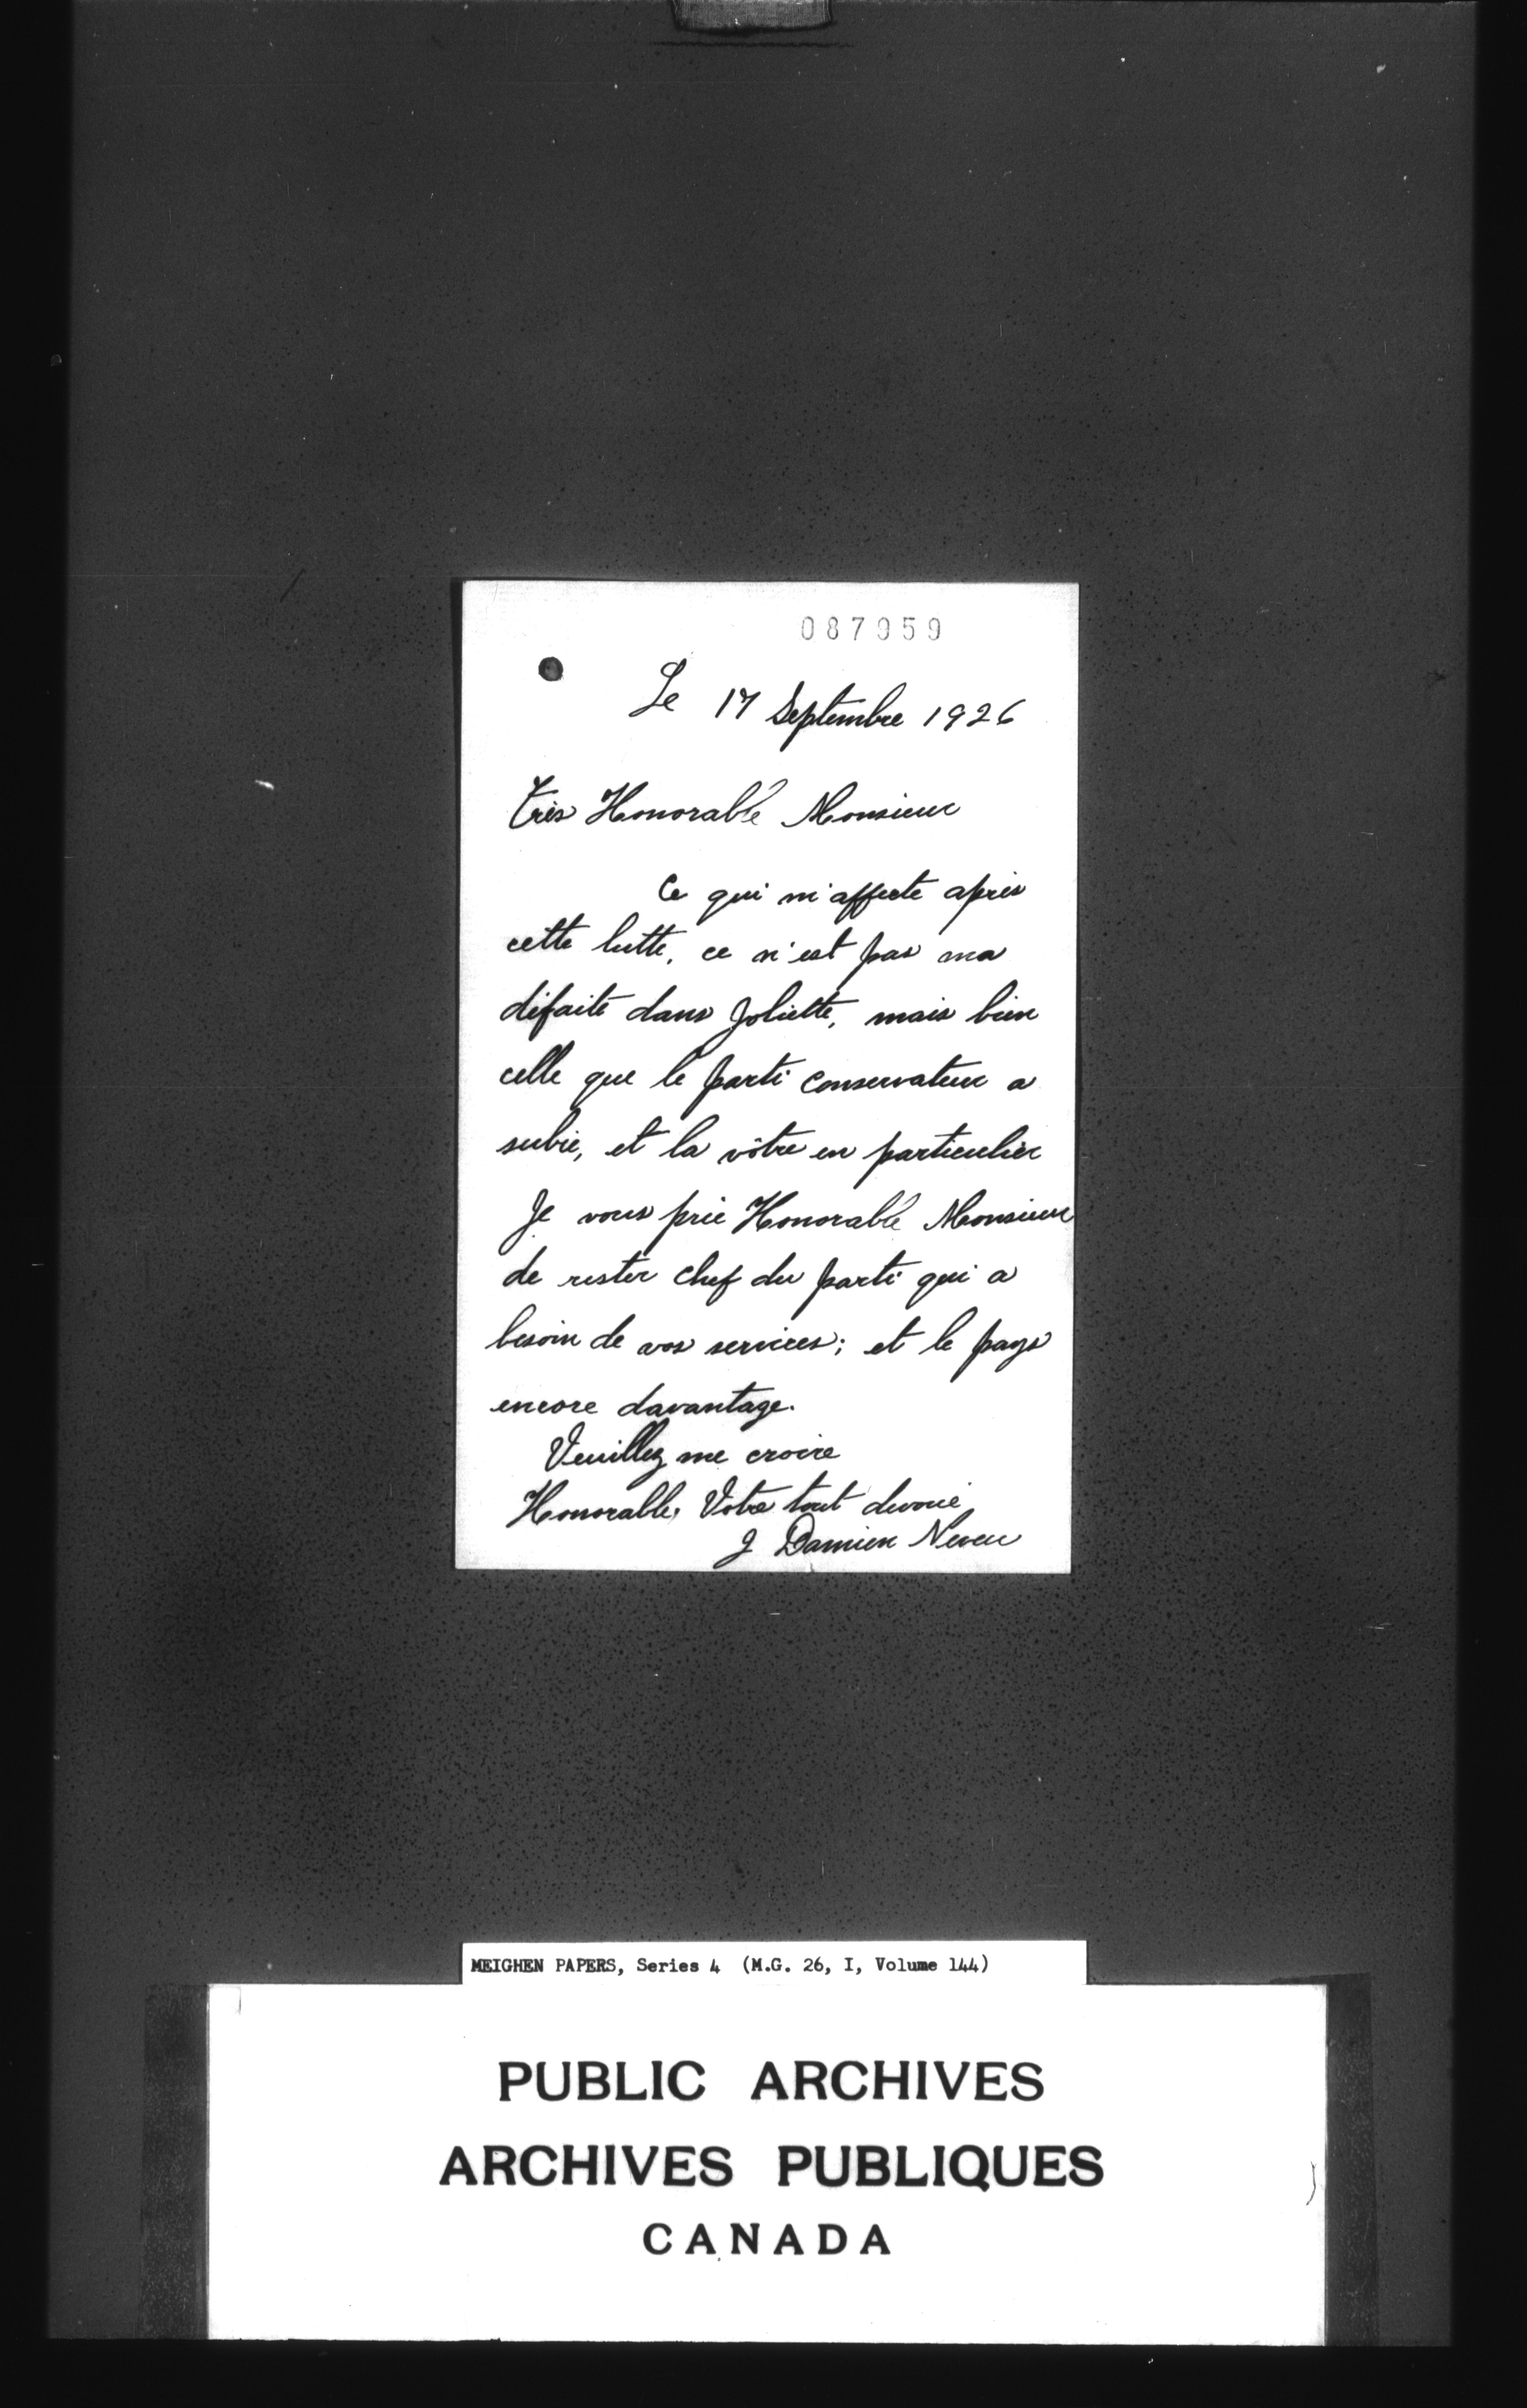 087959
Le 17 Septembre 1926
Très Honorable Monsieur
Ce qui m'affecte après
cette lutte, ce n'est pas ma
défaite dans Joliette, mais bien
celle que le parti conservateur a
subie, et la vôtre en particulier
Je vous prie Honorable Monsieur
de rester chef du parti qui a
besoin de vos services; et le pays
encore davantage.
Veuillez me croire
Honorable, Votre tout devoué
J Damien Neveu
MEIGHEN PAPERS, Series 4 (M.G. 26, I, Volume 144)
PUBLIC ARCHIVES
ARCHIVES PUBLIQUES
CANADA